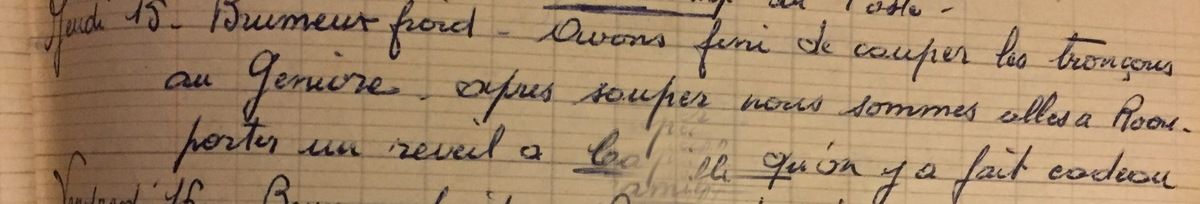 Poste -
Jeudi 15 - Brumeux froid - Avons fini de couper les tronçons
au Genièvre. après souper nous sommes alles a Roou.
porter un reveil a qu'on y a fait cadeau
Vendredi 16